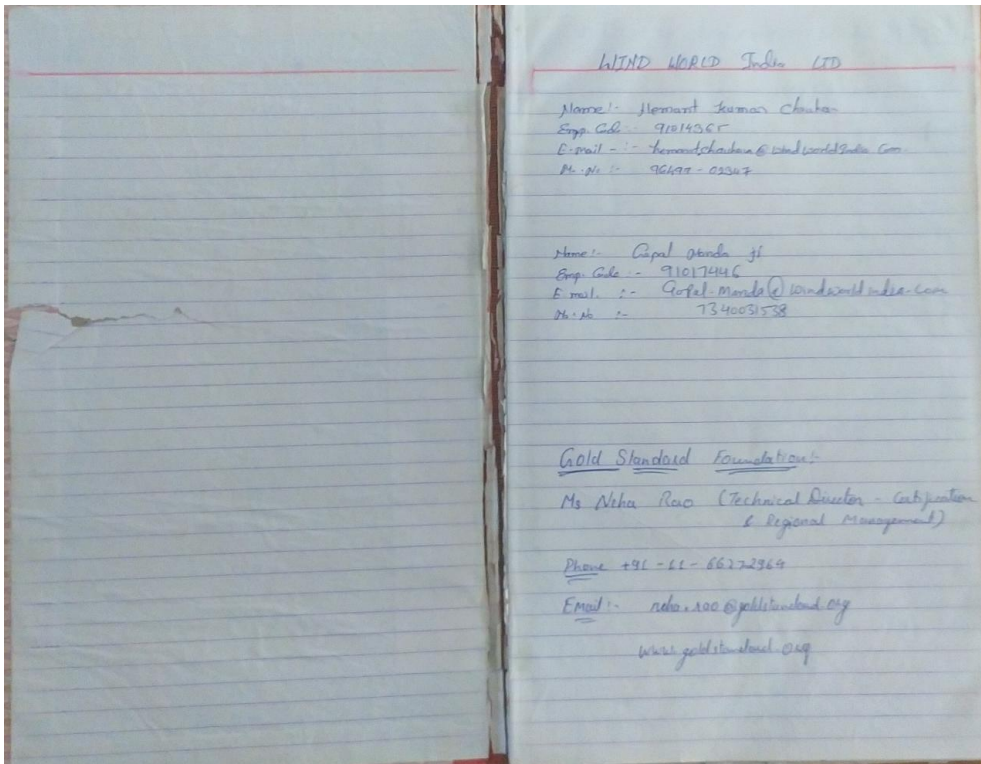 WIND WORLD India LTD
Name:- Hemant Kumar Chauhan
Emp. Code :- 91014365
E-mail -:- hemantchauhan@windworldIndia.Com
M. No :- 96497-02347
Name:- Gopal Manda ji
Emp. Code :- 91017446
E-mail. :- Gopal.Manda@windworldindia.com
M. No :- 7340031538
Gold Standard Foundation:-
Ms Neha Rao (Technical Director - Certification
& Regional Management)
Phone +91-11-66272964
Email:- neha.rao@goldstandard.org
www.goldstandard.org